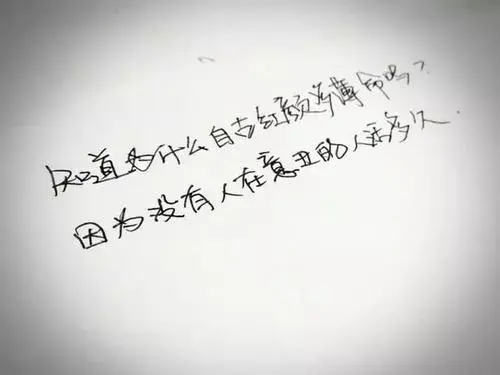 知道为什么自古红颜多薄命吗?
因为没有人在意丑的人活多久.